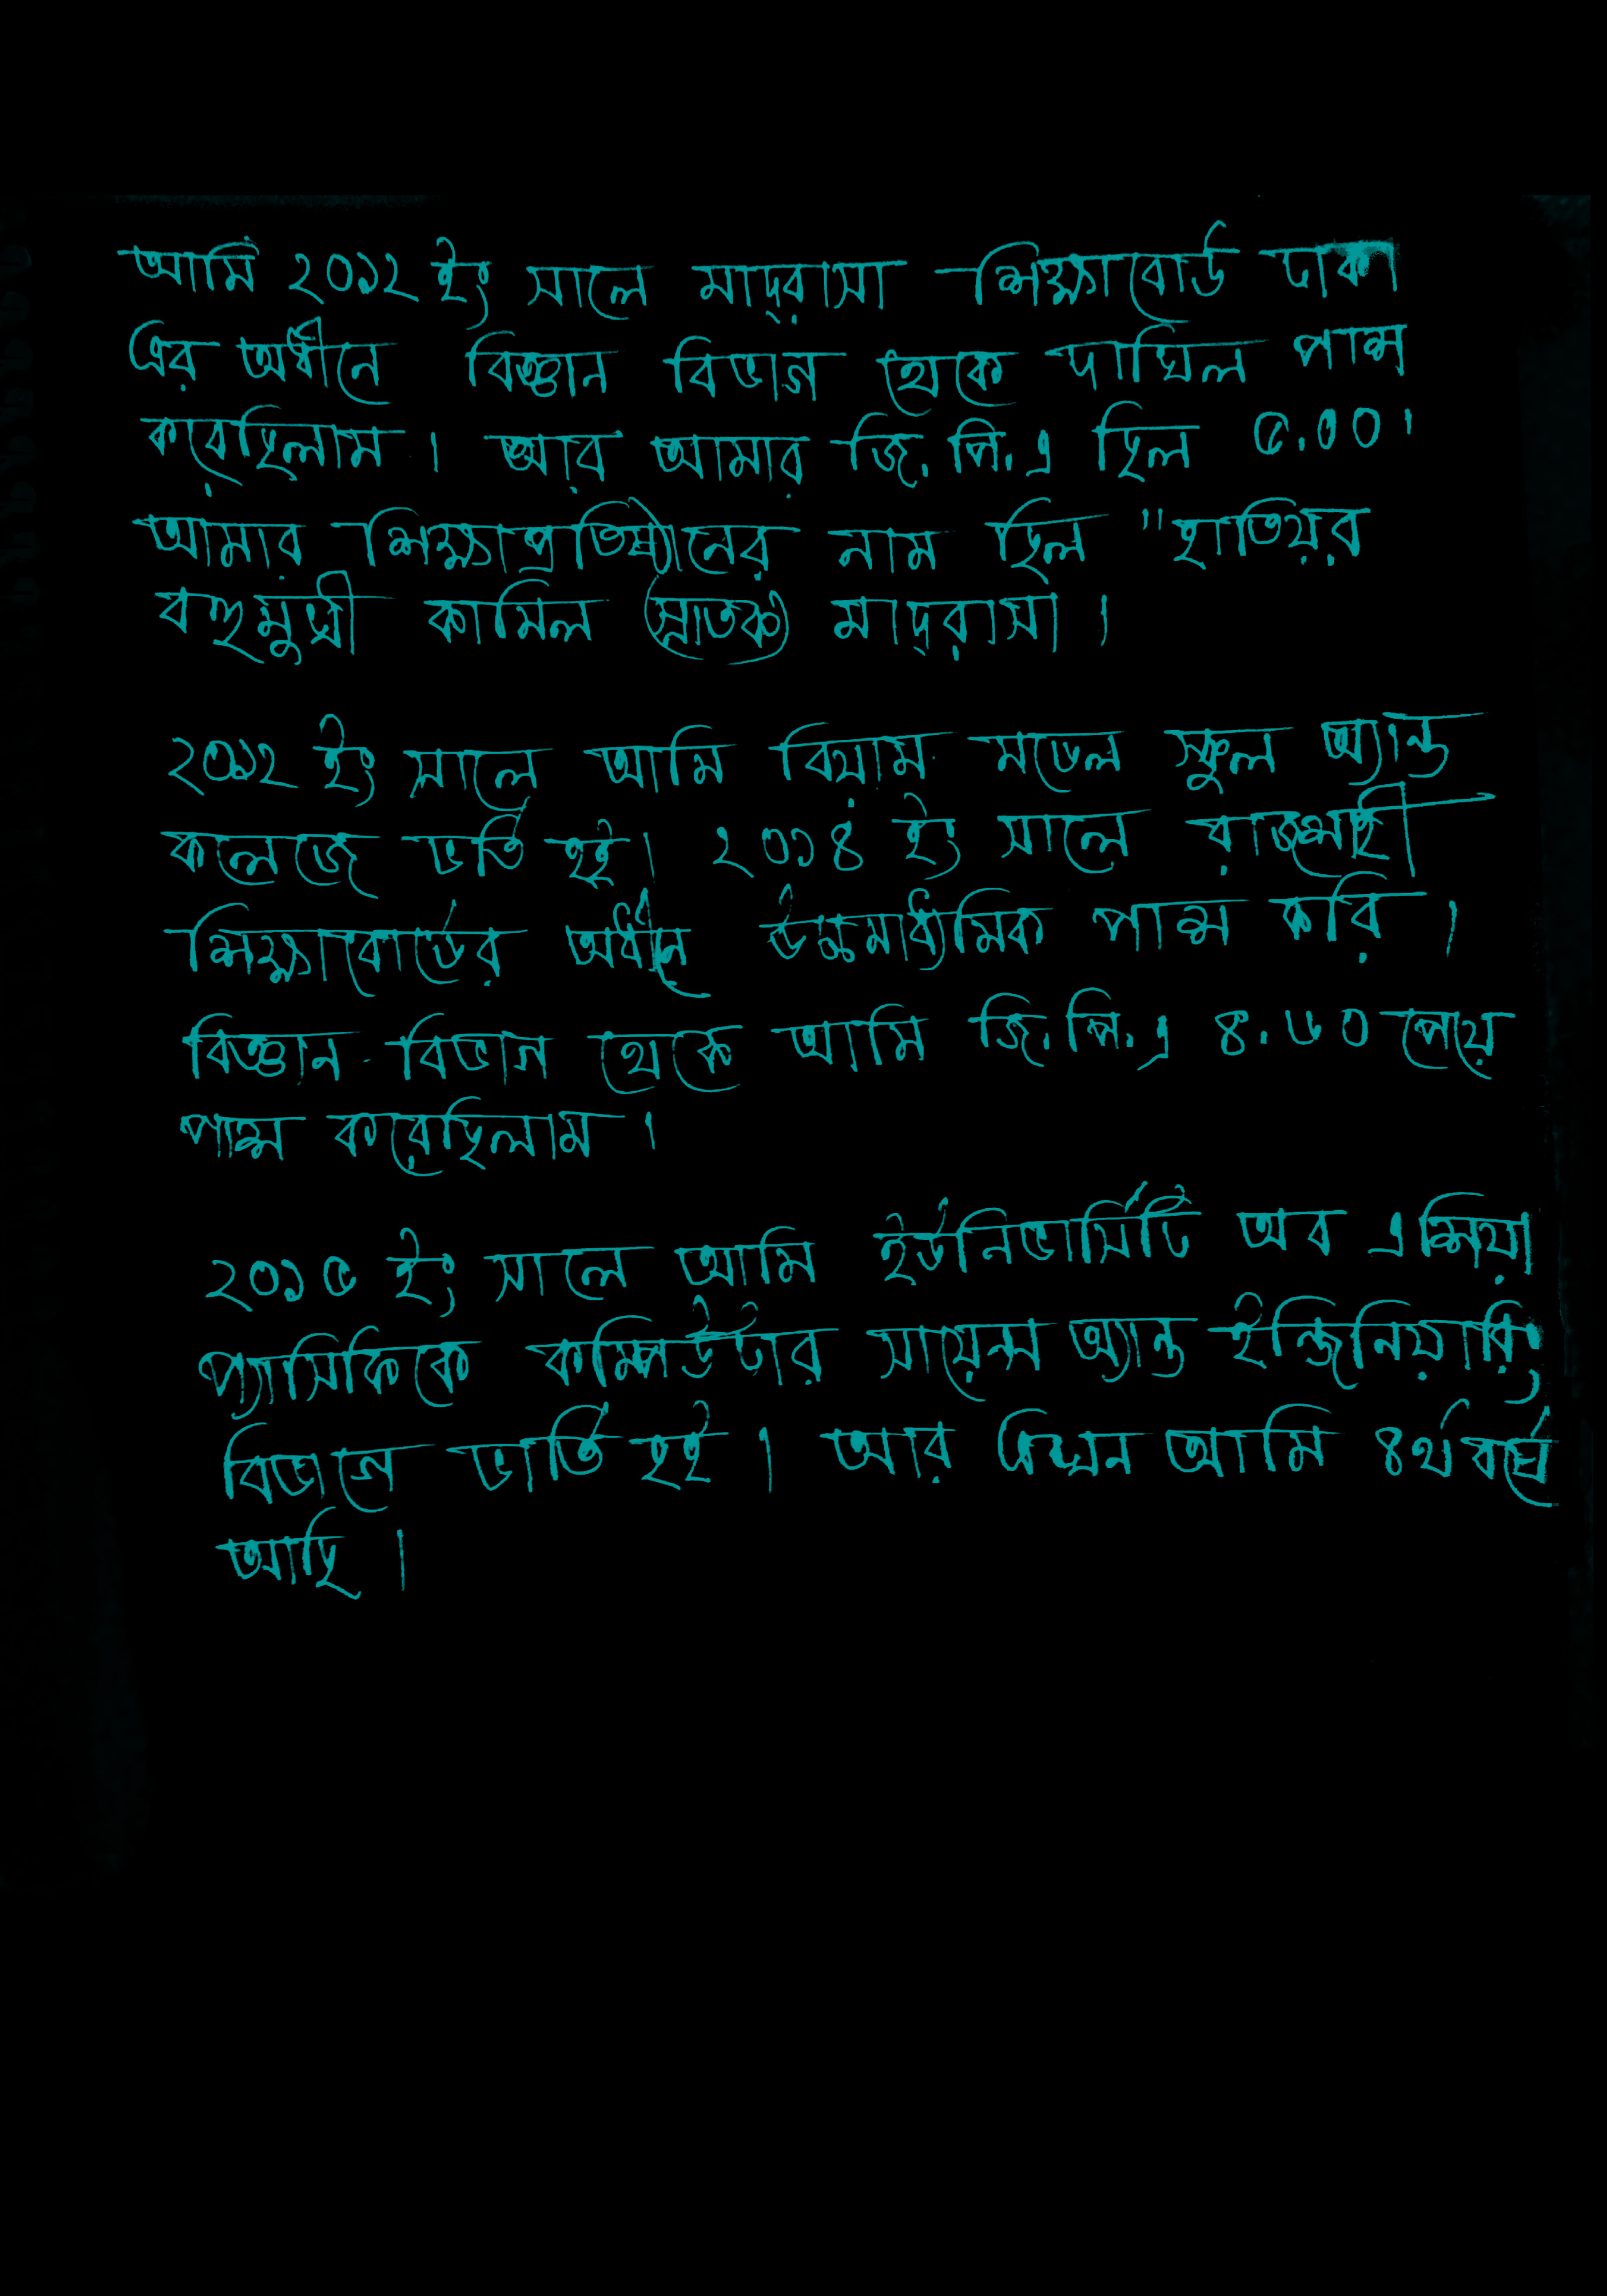 আমি ২০১২ ইং সালে মাদ্রাসা শিক্ষাবোর্ড ঢাকা
এর অধীনে বিজ্ঞান বিভাগ থেকে দাখিল পাশ
করেছিলাম। আর আমার জি.পি.এ ছিল ৫.০০।
আমার শিক্ষাপ্রতিষ্ঠানের নাম ছিল "হাতিয়র
বহুমুখী কামিল (স্নাতক) মাদ্রাসা।
২০১২ ইং সালে আমি বিয়াম মডেল স্কুল অ্যান্ড
কলেজে ভর্তি হই। ২০১৪ ইং সালে রাজশাহী
শিক্ষাবোর্ডের অধীনে উচ্চমাধ্যমিক পাশ করি।
বিজ্ঞান বিভাগ থেকে আমি জি.পি.এ ৪.৬০ পেয়ে
পাশ করেছিলাম।
২০১৫ ইং সালে আমি ইউনিভার্সিটি অব এশিয়া
প্যাসিফিকে কম্পিউটার সায়েন্স অ্যান্ড ইন্জিনিয়ারিং
বিভাগে ভার্তি হই। আর এখন আমি ৪র্থ বর্ষে
আছি।